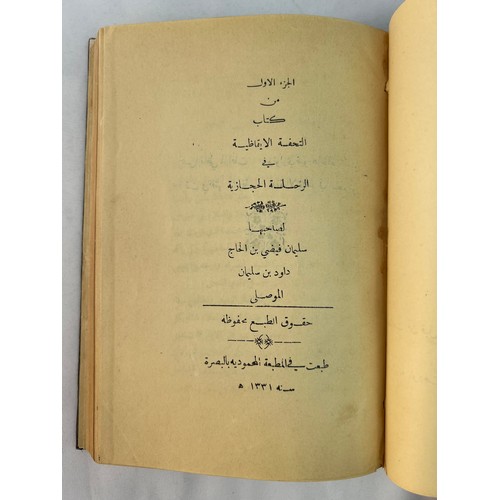 الجزء الاول
من
كتاب
التحفة الايقاظية
في
الرحلة الحجازية
لصاحبها
سليمان فيضي بن الحاج
داود بن سليمان
الموصلي
حقوق الطبع محفوظه
طبعت في المطبعة المحموديه بالبصرة
سنه ١٣٣١ ه